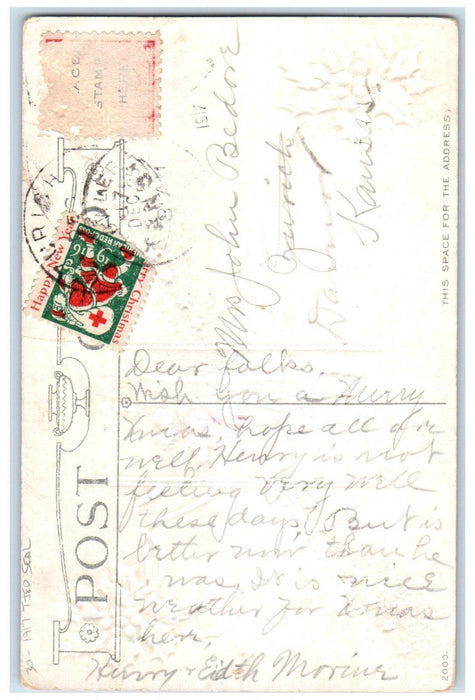 PLACE
STAMP
HERE
DEC
1917
Happy New Year
Merry Christmas
AMERICAN RED CROSS
1916
Mrs John Bedore
Zurich
Kansas
THIS SPACE FOR THE ADDRESS.
POST
Dear folks,
Wish you a Merry
Xmas, hope all are
well, Henry is not
feeling very well
these days. But is
better now than he
was. It is nice
weather for Xmas
here,
Henry & Edith Moriner
30-1917 TIED SEAL
2000.